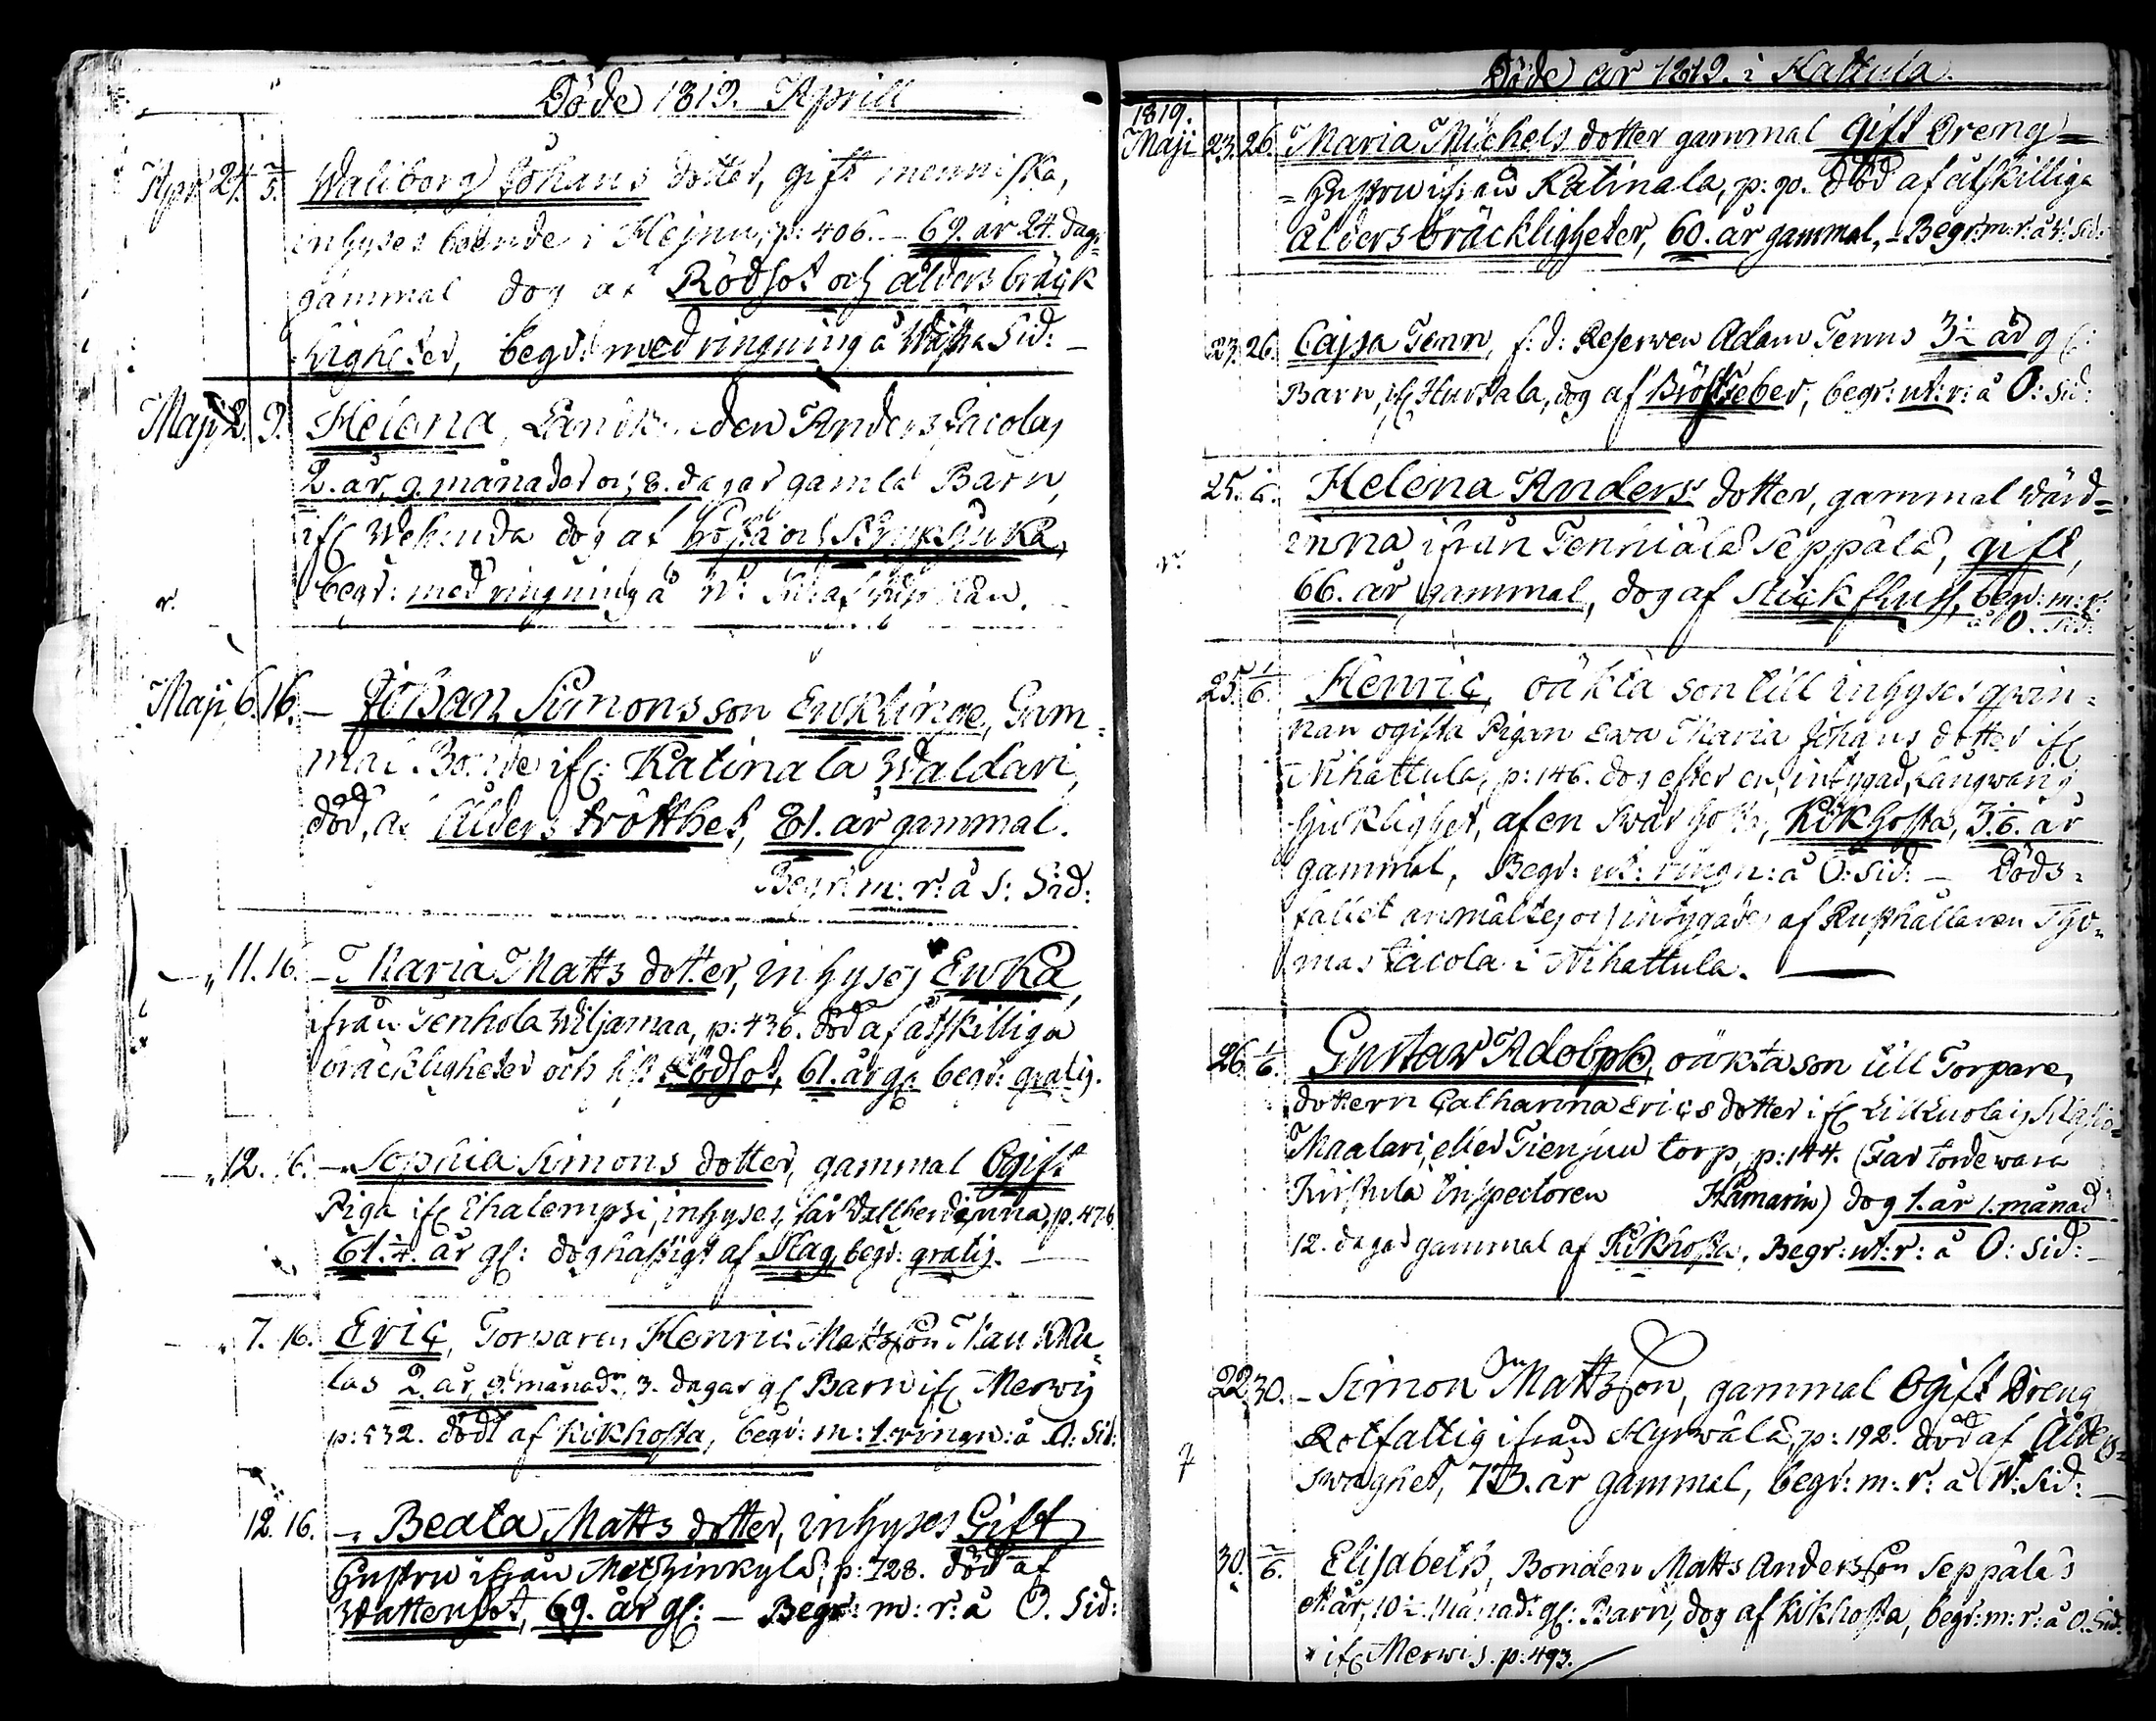 Döde 1819. Aprill
Apr 24. 2/5. Waliborg Johans dotter, gift menniska,
inhyses boende i Hejnu, p: 406. 69. år 24. dagr
gammal dog af Rödsot och ålders bräck
ligheter, begr: med ringning å Wästra Sid:
Maji 2. 9. Helena, den Anders Lacolas
2. år, 9. månader och 8. dagar gamla Barn,
ifr dog af hosta och
r. begr: med ringning å
Maji 6. 16. Johan Simons son Enkling, Gam=
mal Bonde ifr: Katinala Waldari,
död, af Ålders trötthet, 81. år gammal.
Begr: m: r: å S: Sid:
11. 16. Maria Matts dotter, inhyses Enka,
ifrån Tenhola Wiljamaa, p: 436. död af åtskilliga
bräckligheter och sist Rödsot, 61. år gl begr: gratis.
12. 16. Sophia Simons dotter, gammal Ogift
Piga ifr Ihalempsi, inhyses, p. 476.
61 1/4. år gl: dog hastigt af Slag, begr: gratis.
7. 16. Eric, Torparen Henric Mattsson
las 2. år, 9. månadr, 3. dagar gl Barn ifr Merwis
p: 532. dödt af Kikhosta, begr: m: 1. ringn: å O: Sid:
12. 16. Beata Matts dotter, inhyses Gift
Hustru ifrån Metzänkylä, p: 728. död af
Wattensot, 69. år gl: Begr: m: r: å O. Sid:
Döde år 1819. i Hattula.
1819.
Maji 23. 26. Maria Michels dotter gammal gift Dreng=
=Hustru ifrån Katinala, p: 90. död af åtskilliga
ålders bräckligheter, 60. år gammal, Begr: m: r: å W: Sid:
23. 26. Cajsa Tenn, f: d: Reserven Adam Tenns 3 1/2 år gl:
Barn, ifr Hurttala, dog af Bröstfeber, begr: ut: r: å O: Sid:
25. Helena Anders dotter, gammal wärd=
r. inna ifrån Tenniälä Seppälä, gift,
66. år gammal, dog af Stickfluss, begr: m: r:
å O. Sid:
25. 1/6. Henric, oäkta son till inhyses qwin=
nan ogifta Pigan Ewa Maria Johans dotter ifr
Nihattula, p: 146. dog efter en, intygad, långwarig
sjuklighet, af en swår hosta, Kikhosta, 3 1/6. år
gammal, Begr: ut: ringn: å O: Sid: Döds=
fallet anmältes och intygades af Rusthållaren Tho=
mas Lacola i Nihattula.
26. 1/6. Gustav Adolph, oäkta son till Torpare,
dottern Catharina Erics dotter ifr
Maalari, eller Tienjuu torp, p: 144. (Far torde wara
Inspectoren Hamarin) dog 1. år 1. månad
12. dagar gammal af Kikhosta, Begr: ut: r: å O: Sid:
22. 30. Simon Mattsson, gammal Ogift Dreng
Rotfattig ifrån Hyrwälä, p: 192. död af Ålders=
swaghet, 73. år gammal, begr: m: r: å W: Sid:
30. 2/6. Elisabeth, Bonden Matts Andersson Seppäläs
år, 10 1/2 månadr gl: Barn, dog af kikhosta, begr: m: r: å O. Sid:
* ifr Merwis. p: 493.